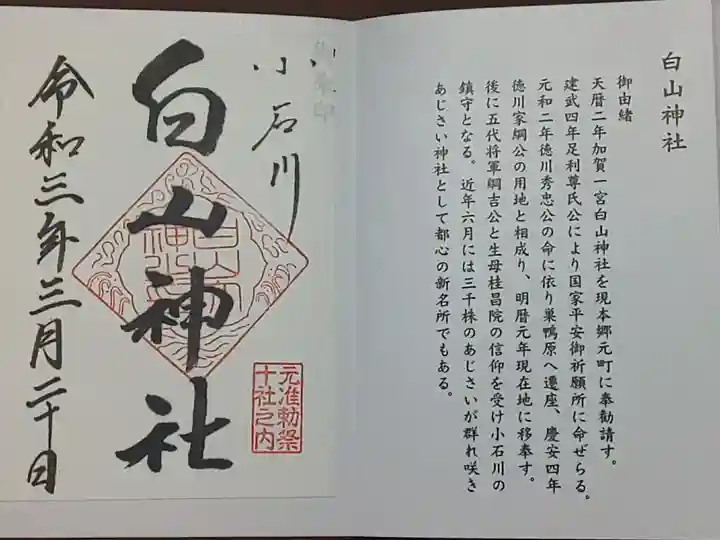 白山神社
御由緒
天暦二年加賀一宮白山神社を現本郷元町に奉勧請す。
建武四年足利尊氏公により国家平安御祈願所に命ぜらる。
元和二年徳川秀忠公の命に依り巣鴨原へ遷座、慶安四年
徳川家綱公の用地と相成り、明暦元年現在地に移奉す。
後に五代将軍綱吉公と生母桂昌院の信仰を受け小石川の
鎮守となる。近年六月には三千株のあじさいが群れ咲き
あじさい神社として都心の新名所でもある。
小石川
白山神社
元准勅祭
十社之内
令和三年三月二十日